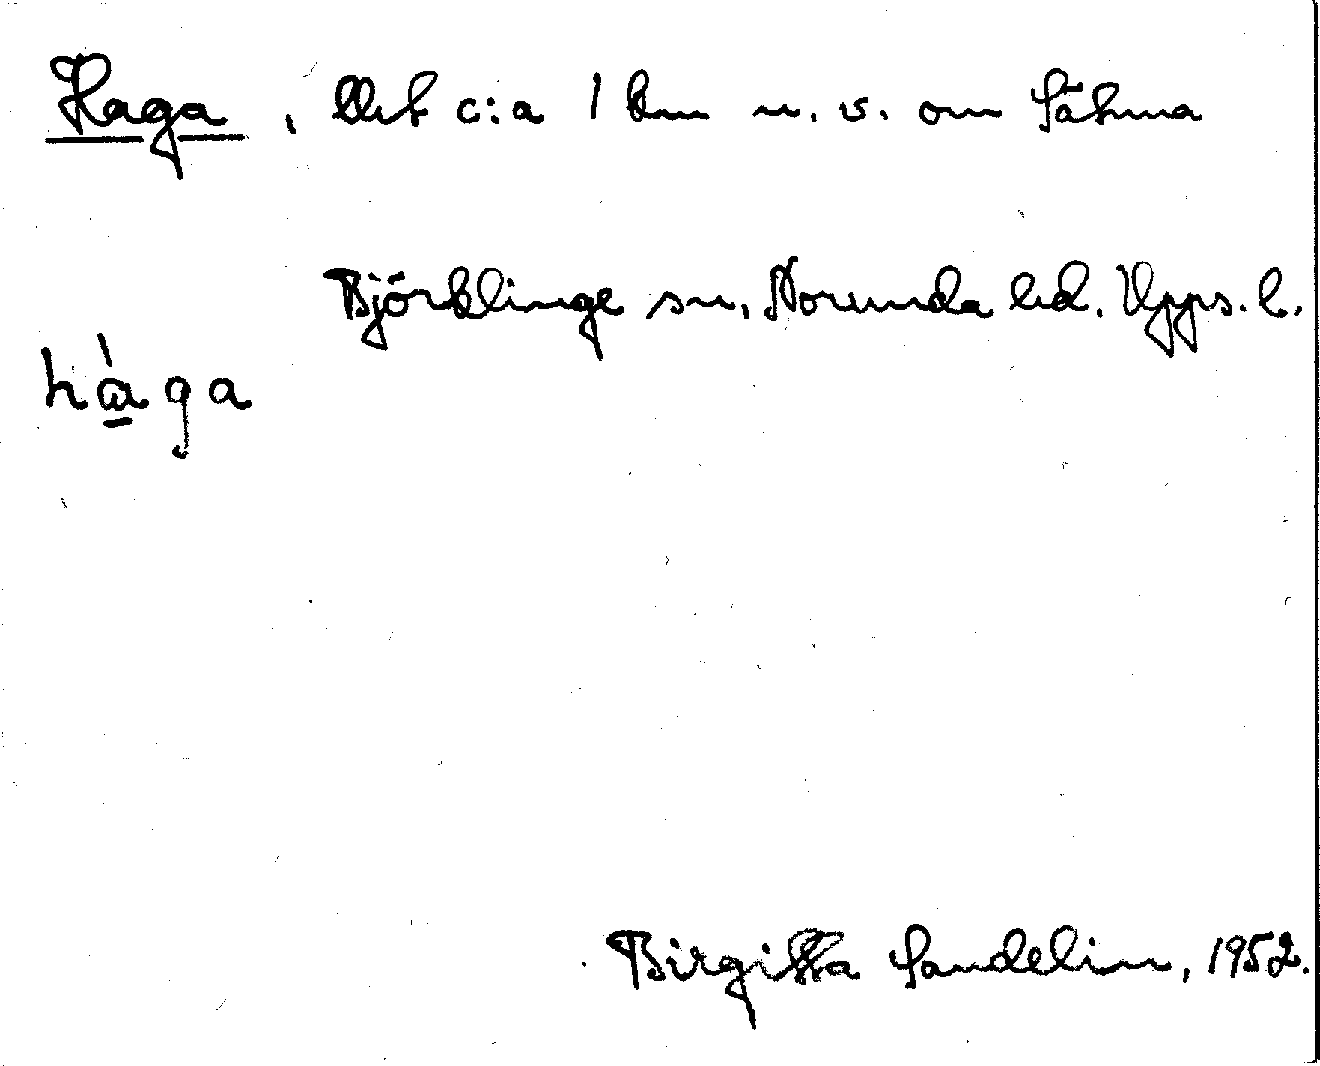 Haga, c:a 1 km n.v. om Sätuna
Björklinge sn, Norunda hd. Upps. l.
hàga
Birgitta Sandelin, 1952.